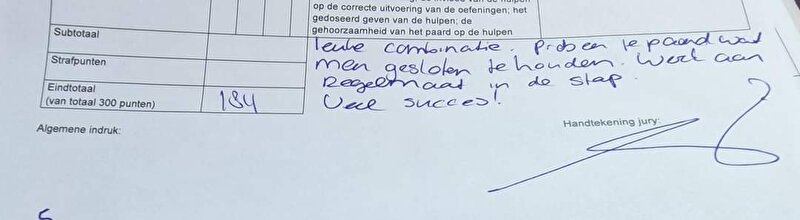 op de correcte uitvoering van de oefeningen; het
gedoseerd geven van de hulpen; de
gehoorzaamheid van het paard op de hulpen
Subtotaal
Strafpunten
Eindtotaal
(van totaal 300 punten)
184
leuke combinatie. Probeer je paard wat
meer gesloten te houden. Werk aan
Regelmaat in de stap.
Veel succes!
Algemene indruk:
Handtekening jury: